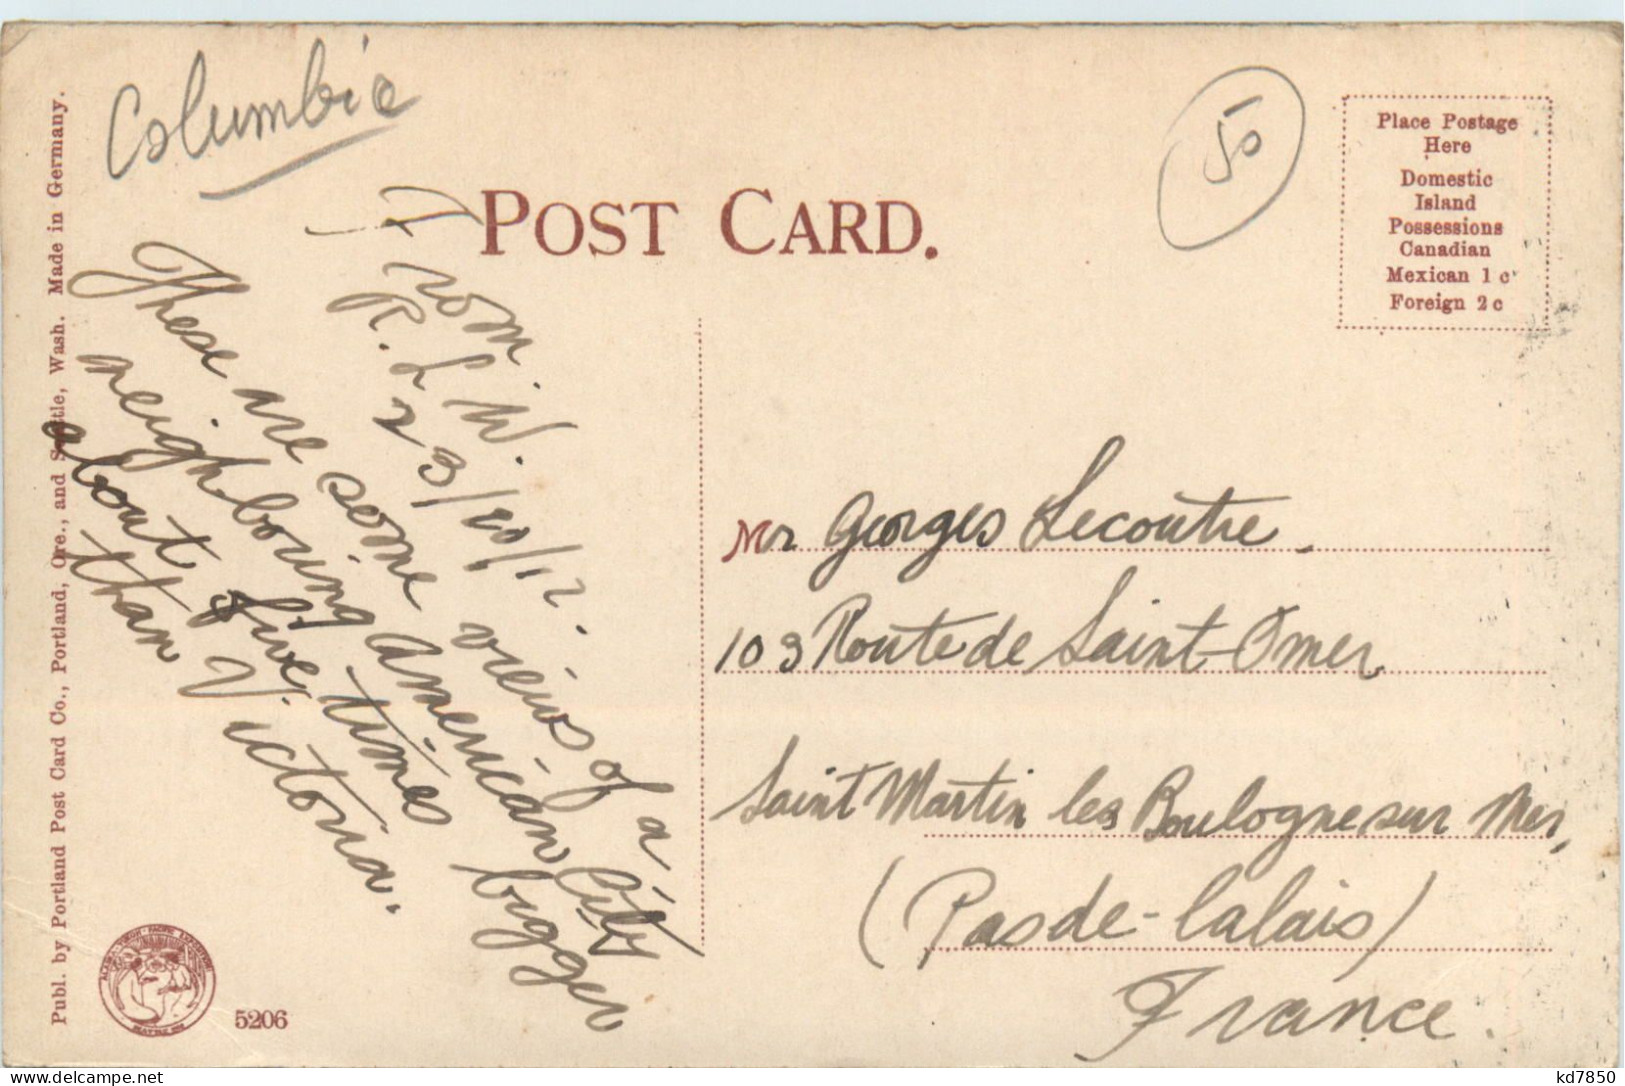 Columbia
50
POST CARD.
Place Postage
Here
Domestic
Island
Possessions
Canadian
Mexican 1 c
Foreign 2 c
From
R. L. W.
23/10/12.
These are some views of a
neighbouring american City
about five times bigger
than Victoria.
Mr Georges Lecoutre
103 Route de Saint-Omer
Saint Martin les Boulogne sur Mer,
(Pas de-Calais)
France.
Publ. by Portland Post Card Co., Portland, Ore., and Seattle, Wash. Made in Germany.
5206
kd7850